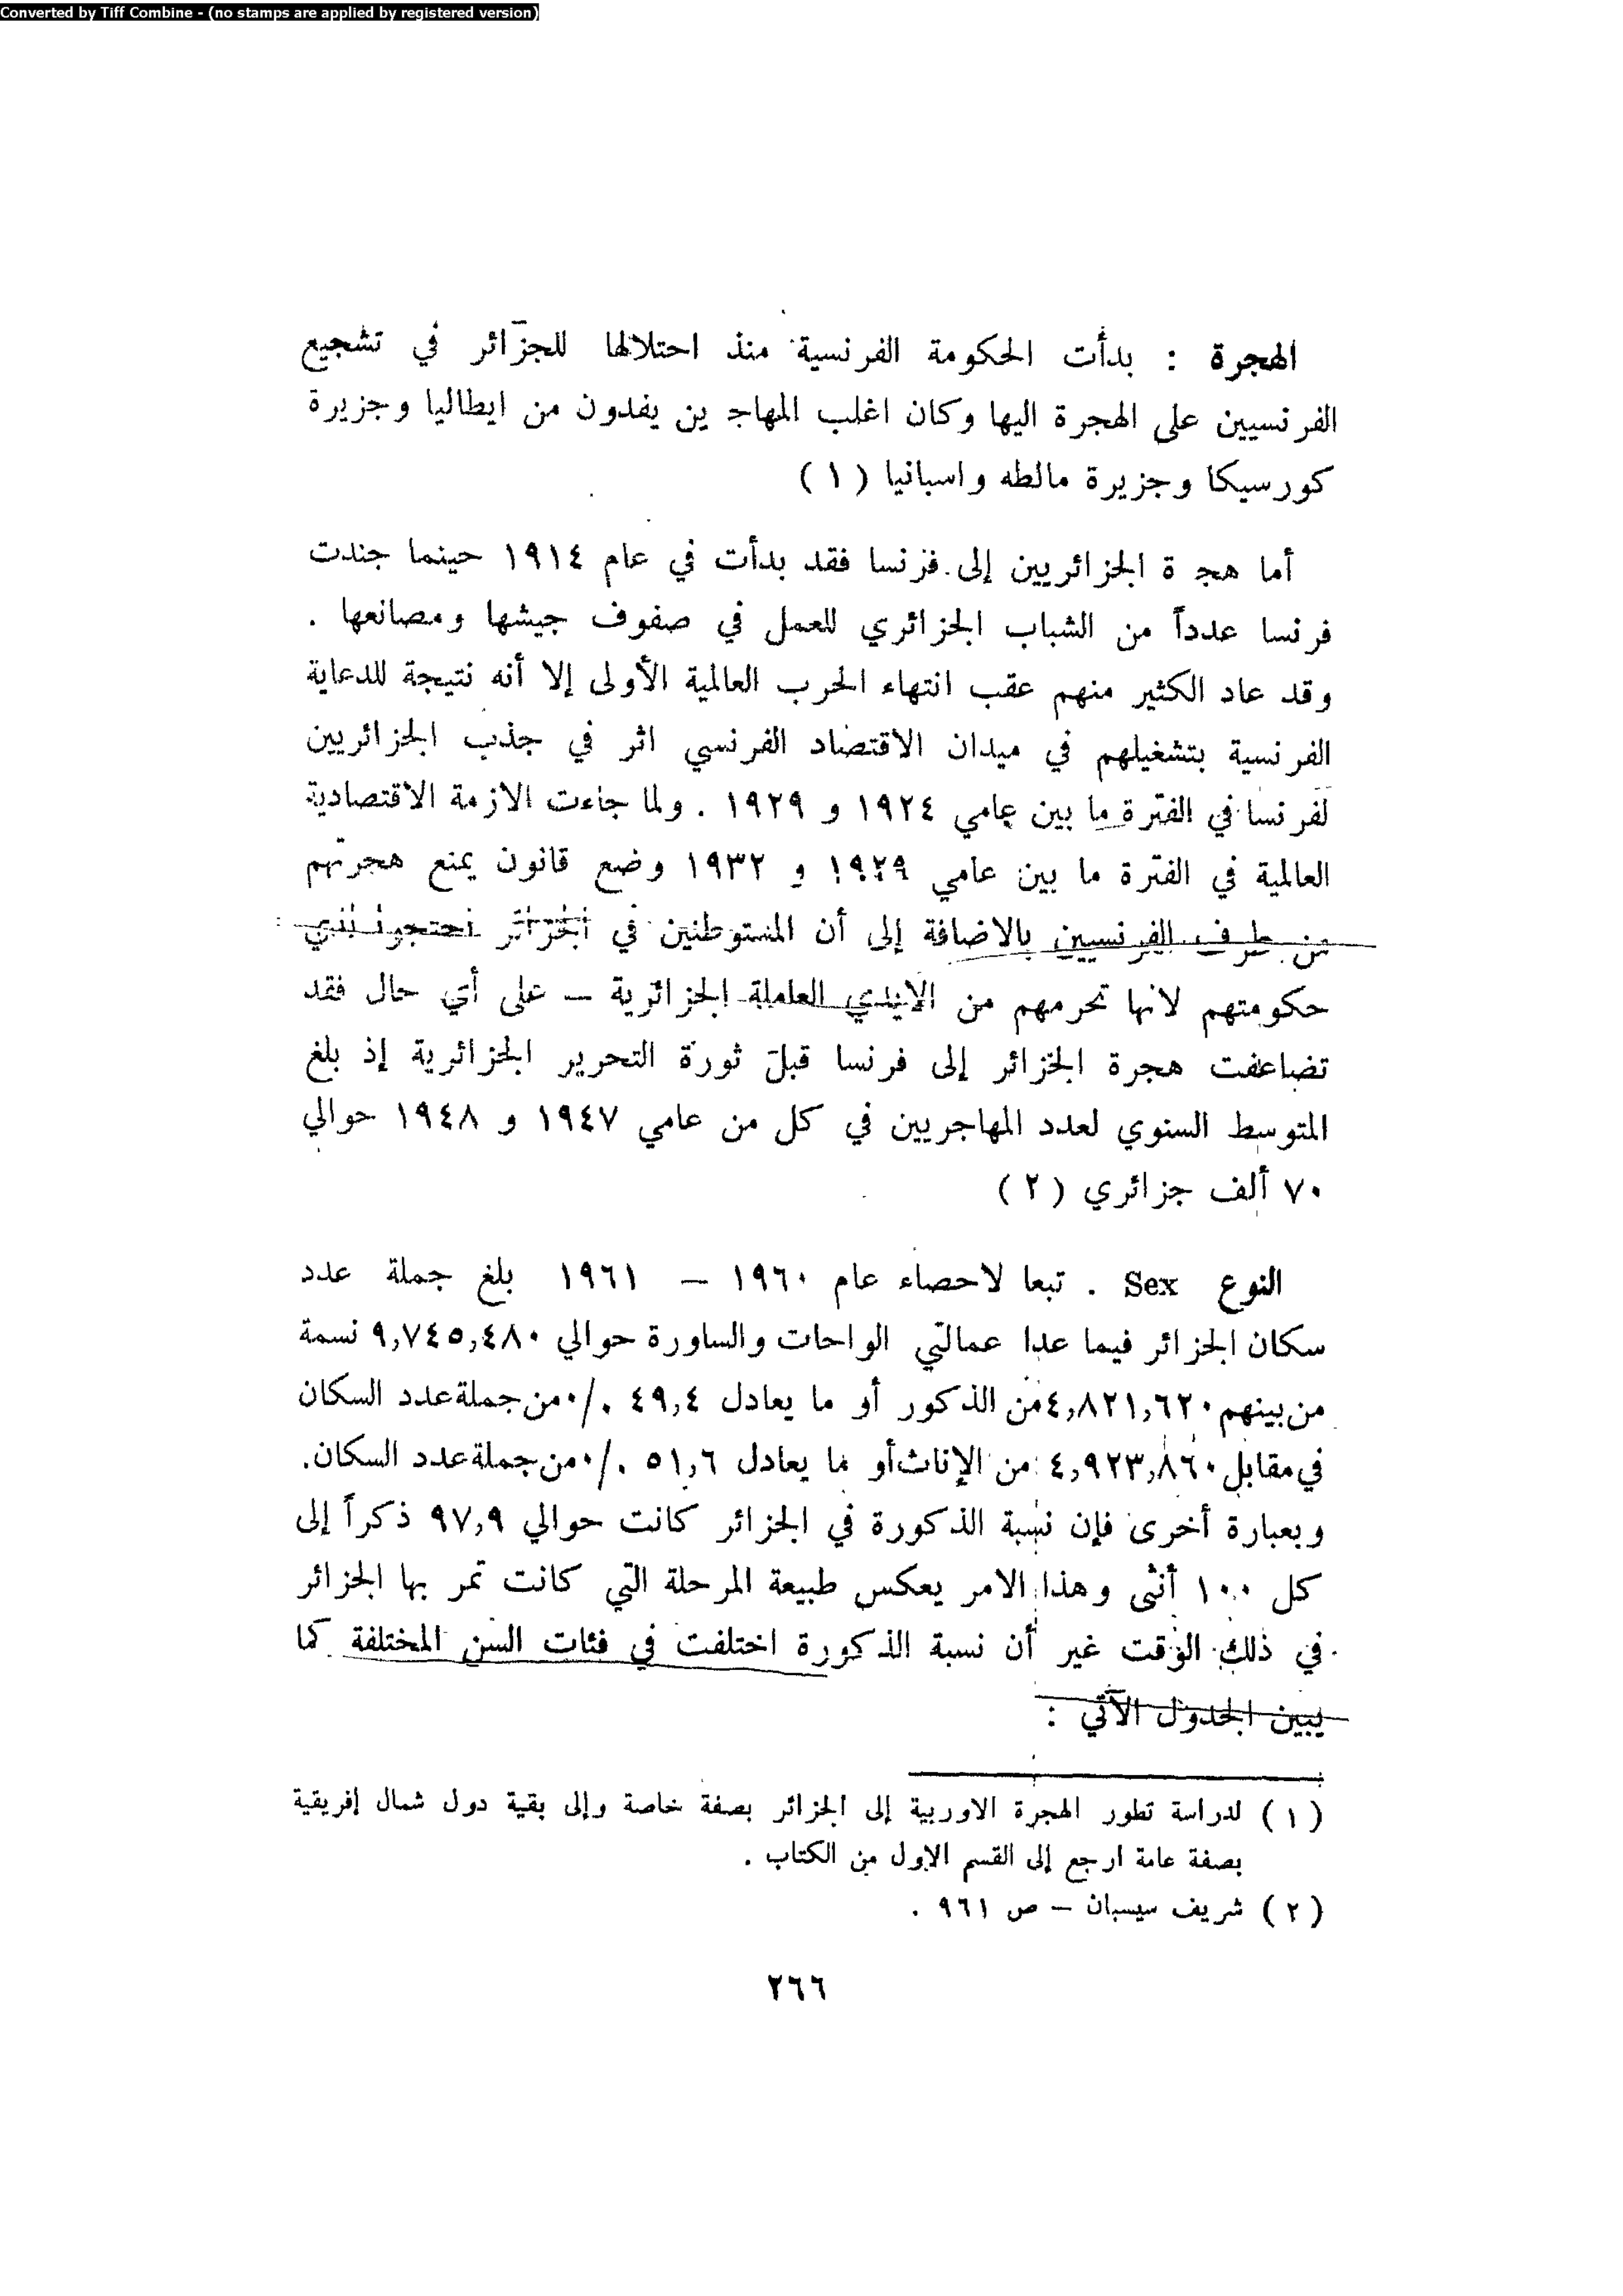 Converted by Tiff Combine - (no stamps are applied by registered version)
الهجرة : بدأت الحكومة الفرنسية منذ احتلالها للجزائر في تشجيع
الفرنسيين على الهجرة اليها وكان اغلب المهاجـ ين يفدون من ايطاليا وجزيرة
كورسيكا وجزيرة مالطه واسبانيا ( ١ )
أما هجـ ة الجزائريين إلى فرنسا فقد بدأت في عام ١٩١٤ حينما جندت
فرنسا عدداً من الشباب الجزائري للعمل في صفوف جيشها ومصانعها .
وقد عاد الكثير منهم عقب انتهاء الحرب العالمية الأولى إلا أنه نتيجة للدعاية
الفرنسية بتشغيلهم في ميدان الاقتصاد الفرنسي اثر في جذب الجزائريين
لفرنسا في الفترة ما بين عامي ١٩٢٤ و ١٩٢٩ . ولما جاءت الازمة الاقتصادية
العالمية في الفترة ما بين عامي ١٩٢٩ و ١٩٣٢ وضع قانون يمنع هجرتهم
من طرف الفرنسيين بالاضافة إلى أن المستوطنين في الجزائر احتجوا لدي
حكومتهم لانها تحرمهم من الايدي العاملة الجزائرية – على أي حال فقد
تضاعفت هجرة الجزائر إلى فرنسا قبل ثورة التحرير الجزائرية إذ بلغ
المتوسط السنوي لعدد المهاجريين في كل من عامي ١٩٤٧ و ١٩٤٨ حوالي
٧٠ ألف جزائري ( ٢ )
النوع Sex . تبعا لاحصاء عام ١٩٦٠ – ١٩٦١ بلغ جملة عدد
سكان الجزائر فيما عدا عمالتي الواحات والساورة حوالي ٩,٧٤٥,٤٨٠ نسمة
من بينهم ٤,٨٢١,٦٢٠ من الذكور أو ما يعادل ٤٩,٤ ٠/٠ من جملة عدد السكان
في مقابل ٤,٩٢٣,٨٦٠ من الإناث أو ما يعادل ٥١,٦ ٠/٠ من جملة عدد السكان.
وبعبارة أخرى فإن نسبة الذكورة في الجزائر كانت حوالي ٩٧,٩ ذكراً إلى
كل ١٠٠ أنثى وهذا الامر يعكس طبيعة المرحلة التي كانت تمر بها الجزائر
في ذلك الوقت غير أن نسبة الذكورة اختلفت في فئات السن المختلفة كما
يبين الجدول الآتي :
( ١ ) لدراسة تطور الهجرة الاوربية إلى الجزائر بصفة خاصة وإلى بقية دول شمال إفريقية
بصفة عامة ارجع إلى القسم الاول من الكتاب .
( ٢ ) شريف سيسبان – ص ٩٦١ .
٢٦٦